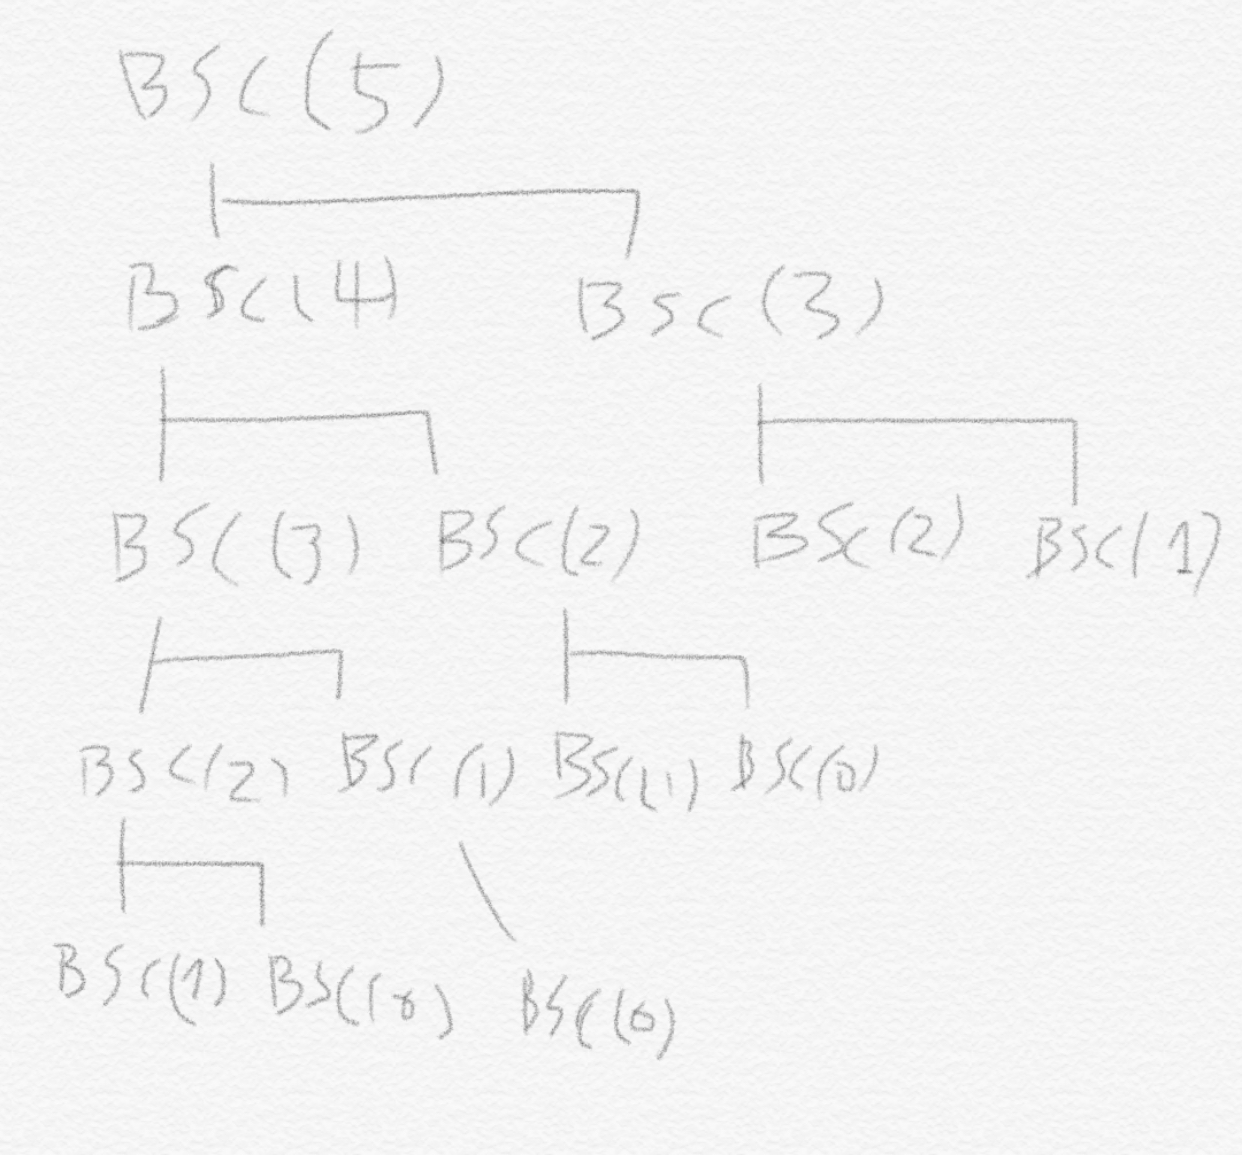 BSC(5)
BSC(4) BSC(3)
BSC(3) BSC(2) BSC(2) BSC(1)
BSC(2) BSC(1) BSC(1) BSC(0)
BSC(1) BSC(0) BSC(0)